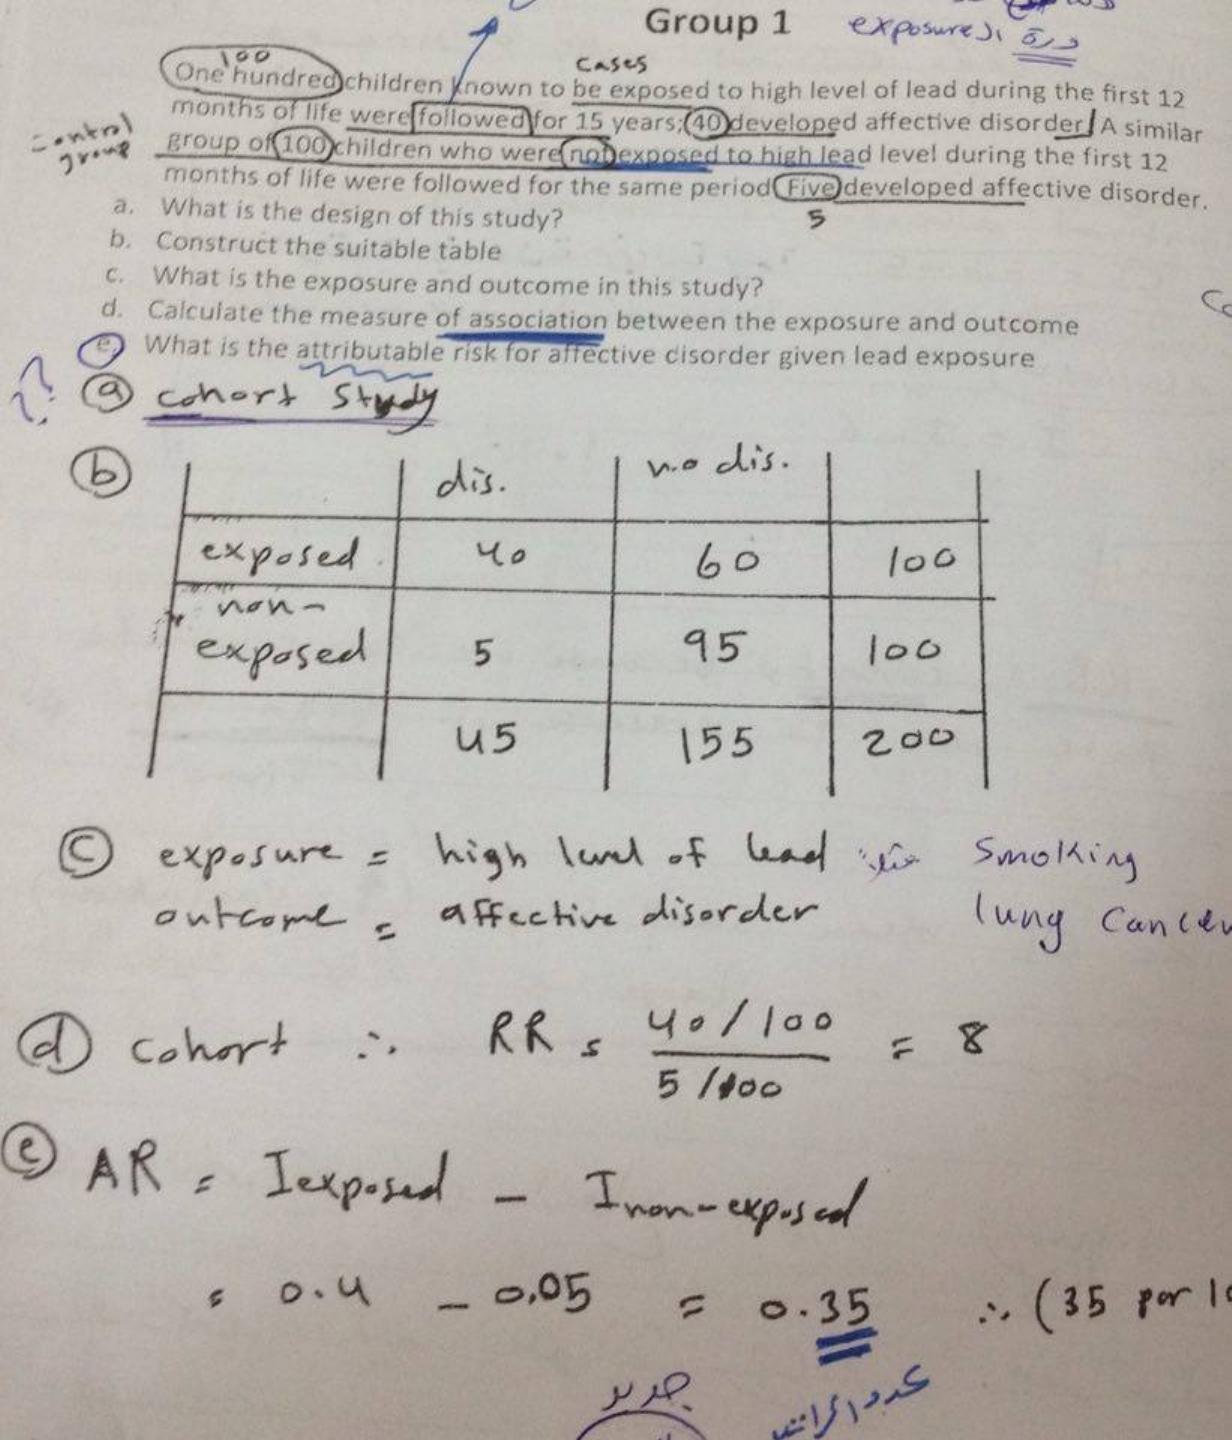 Group 1
exposure ال درة
100
cases
One hundred children known to be exposed to high level of lead during the first 12
months of life were followed for 15 years; 40 developed affective disorder. A similar
control
group
group of 100 children who were not exposed to high lead level during the first 12
months of life were followed for the same period Five developed affective disorder.
5
a. What is the design of this study?
b. Construct the suitable table
c. What is the exposure and outcome in this study?
d. Calculate the measure of association between the exposure and outcome
e. What is the attributable risk for affective disorder given lead exposure
??
a cohort study
b
dis. no dis.
exposed 40 60 100
non-
exposed 5 95 100
45 155 200
c exposure = high level of lead smoking
outcome = affective disorder lung cancer
d cohort ∴ RR = 40/100 = 8
5/100
e AR = Iexposed - Inon-exposed
= 0.4 - 0.05 = 0.35 ∴ (35 per
جديد